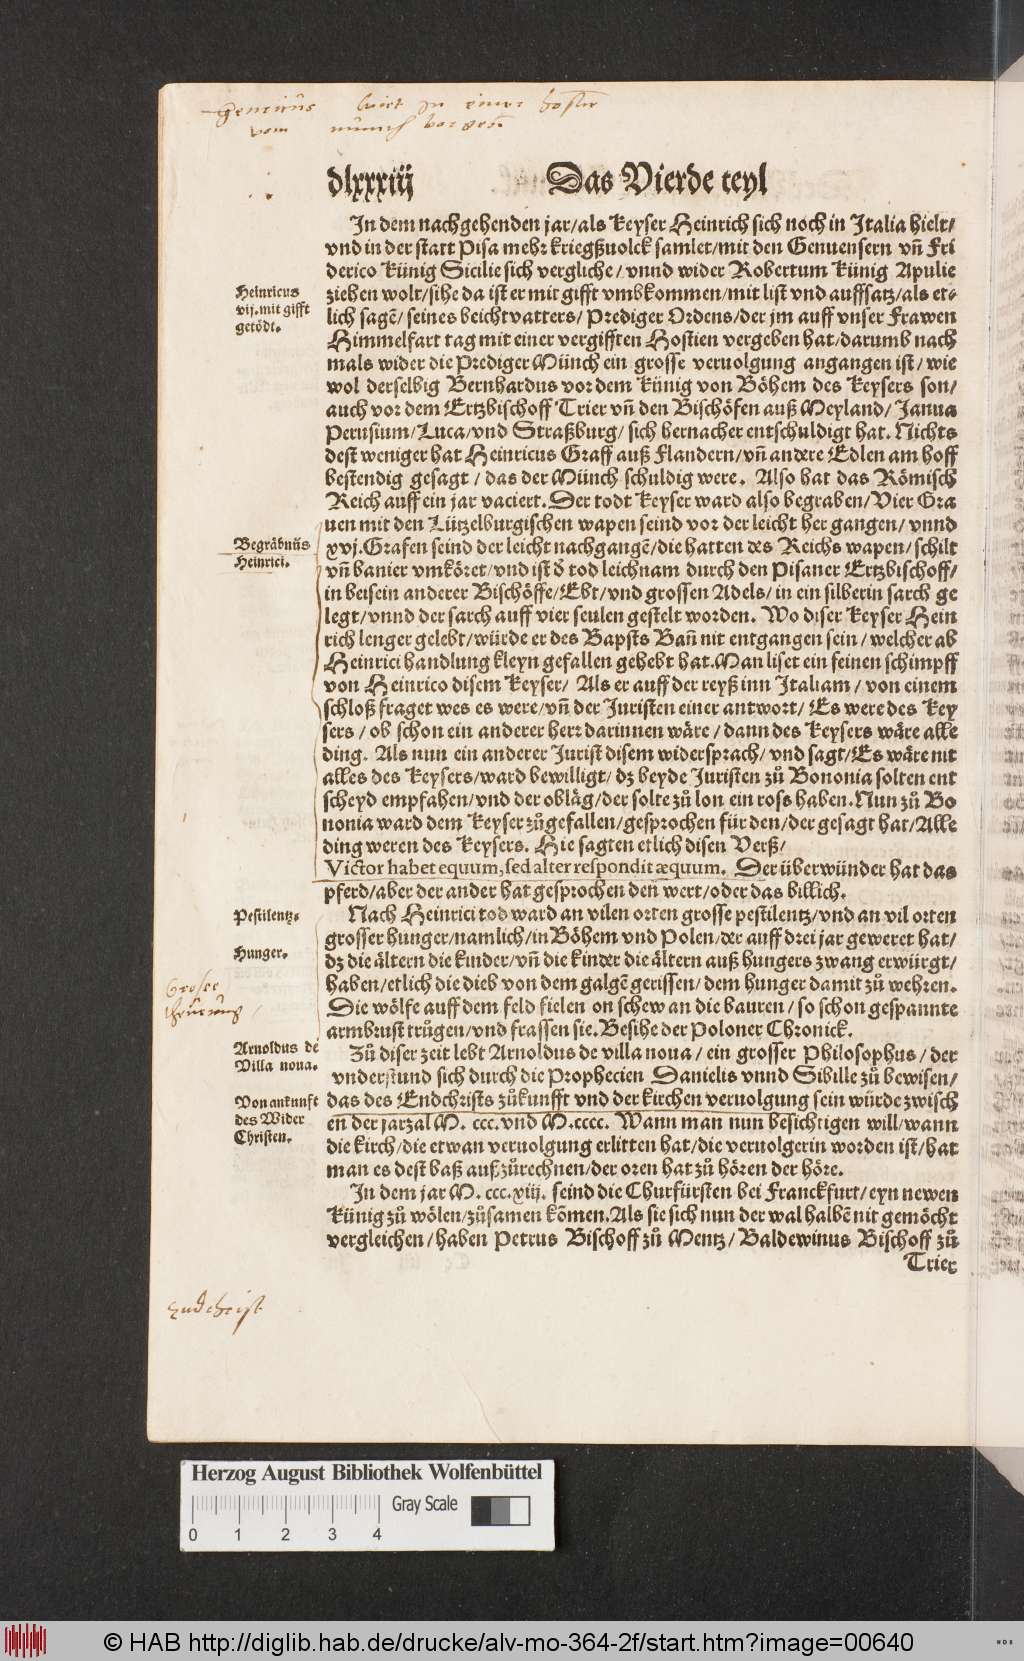 Henricus wirt in einer hostien
vom münch vergeben.
dlxxxiij Das Vierde teyl
In dem nachgehenden jar/als Keyser Heinrich sich noch in Italia hielt/
vnd in der statt Pisa mehr kriegßuolck samlet/mit den Genuensern vn̄ Fri
derico Künig Sicilie sich vergliche/vnnd wider Robertum Künig Apulie
Heinricus
vij.mit gifft
getödt.
ziehen wolt/sihe da ist er mit gifft vmbkommen/mit list vnd auffsatz/als et⸗
lich sagē/seines beichtvatters/Prediger Ordens/der jm auff vnser Frawen
Himmelfart tag mit einer vergifften Hostien vergeben hat/darumb nach
mals wider die Prediger Münch ein grosse veruolgung angangen ist/wie
wol derselbig Bernhardus vor dem Künig von Böhem des Keysers son/
auch vor dem Ertzbischoff Trier vn̄ den Bischöfen auß Meyland/Janua
Perusium/Luca/vnd Straßburg/sich hernacher entschuldigt hat. Nichts
dest weniger hat Heinricus Graff auß Flandern/vn̄ andere Edlen am hoff
bestendig gesagt/das der Münch schuldig were. Also hat das Römisch
Reich auff ein jar vaciert. Der todt Keyser ward also begraben/Vier Gra
uen mit den Lützelburgischen wapen seind vor der leicht her gangen/vnnd
Begräbnüs
Heinrici.
xvj. Grafen seind der leicht nachgangē/die hatten des Reichs wapen/schilt
vn̄ banier vmköret/vnd ist d̄ tod leichnam durch den Pisaner Ertzbischoff/
in beisein anderer Bischöffe/Ebt/vnd grossen Adels/in ein silberin sarch ge
legt/vnnd der sarch auff vier seulen gestelt worden. Wo diser Keyser Hein
rich lenger gelebt/würde er des Bapsts Ban̄ nit entgangen sein/welcher ab
Heinrici handlung kleyn gefallen gehebt hat. Man liset ein feinen schimpff
von Heinrico disem Keyser/Als er auff der reyß inn Italiam/von einem
schloß fraget wes es were/vn̄ der Juristen einer antwort/Es were des Key
sers/ob schon ein anderer herr darinnen wäre/dann des Keysers wäre alle
ding. Als nun ein anderer Jurist disem widersprach/vnd sagt/Es wäre nit
alles des Keysers/ward bewilligt/dz beyde Juristen zů Bononia solten ent
scheyd empfahen/vnd der obläg/der solte zů lon ein ross haben. Nun zů Bo
nonia ward dem Keyser zůgefallen/gesprochen für den/der gesagt hat/Alle
ding weren des Keysers. Hie sagten etlich disen Verß/
Victor habet equum, sed alter respondit æquum. Der überwünder hat das
pferd/aber der ander hat gesprochen den wert/oder das billich.
Pestilentz.
Nach Heinrici tod ward an vilen orten grosse pestilentz/vnd an vil orten
grosser hunger/namlich/in Böhem vnd Polen/der auff drei jar geweret hat/
Hunger.
dz die ältern die kinder/vn̄ die kinder die ältern auß hungers zwang erwürgt/
Grosse
theurung
haben/etlich die dieb von dem galgē gerissen/dem hunger damit zů wehren.
Die wölfe auff dem feld fielen on schew an die bauren/so schon gespannte
armbrust trůgen/vnd frassen sie. Besihe der Poloner Chronick.
Arnoldus de
Villa noua.
Zů diser zeit lebt Arnoldus de villa noua/ein grosser Philosophus/der
vnderstund sich durch die Prophecien Danielis vnnd Sibille zů bewisen/
Von ankunft
des Wider
Christen.
das des Endchrists zůkunfft vnd der kirchen veruolgung sein würde zwisch
en der jarzal M. ccc. vnd M. cccc. Wann man nun besichtigen will/wann
die kirch/die etwan veruolgung erlitten hat/die veruolgerin worden ist/hat
man es dest baß außzůrechnen/der oren hat zů hören der höre.
In dem jar M. ccc. xiij. seind die Churfürsten bei Franckfurt/eyn newen
Künig zů wölen/zůsamen kōmen. Als sie sich nun der wal halbē nit gemöcht
vergleichen/haben Petrus Bischoff zů Mentz/Baldewinus Bischoff zů
Trier
Endchrist
Herzog August Bibliothek Wolfenbüttel
Gray Scale
0 1 2 3 4
© HAB http://diglib.hab.de/drucke/alv-mo-364-2f/start.htm?image=00640